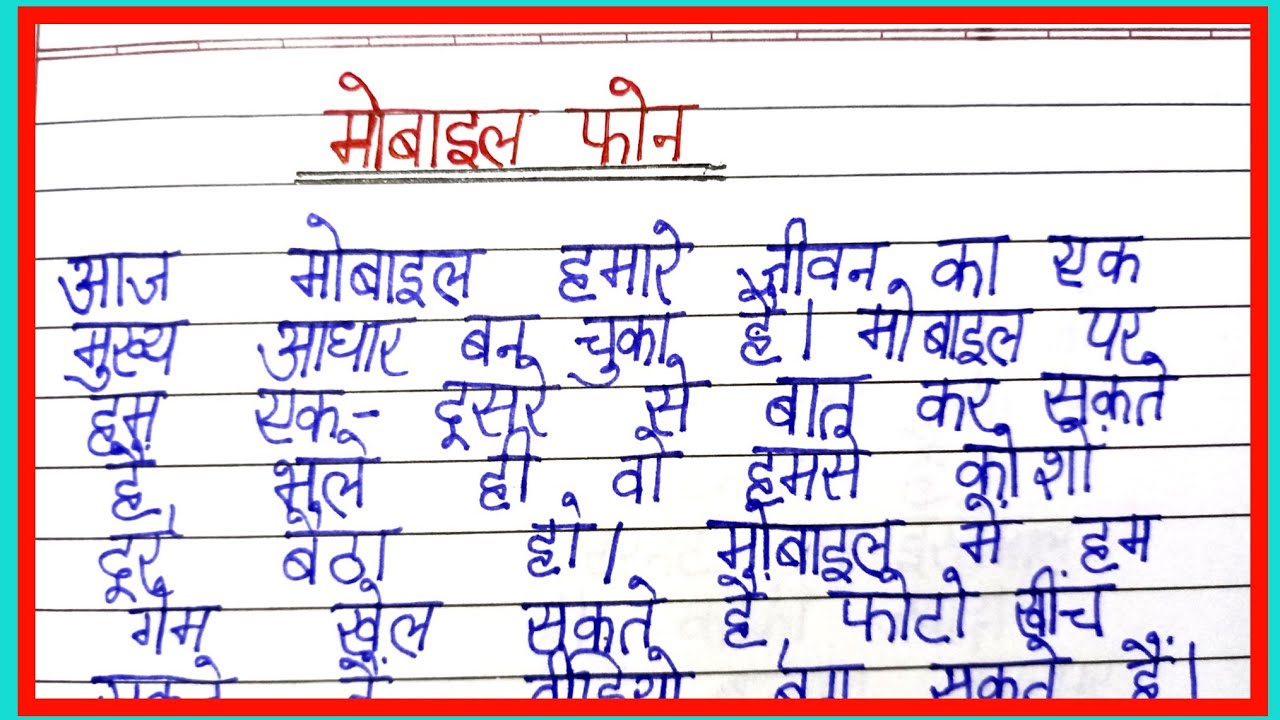 मोबाइल फोन
आज मोबाइल हमारे जीवन का एक
मुख्य आधार बन चुका है। मोबाइल पर
हम एक- दूसरे से बात कर सकते
हैं, भले ही वो हमसे कोशो
दूर बैठा हो। मोबाइल में हम
गेम खेल सकते है, फोटो खींच
सकते हैं, वीडियो बना सकते हैं।